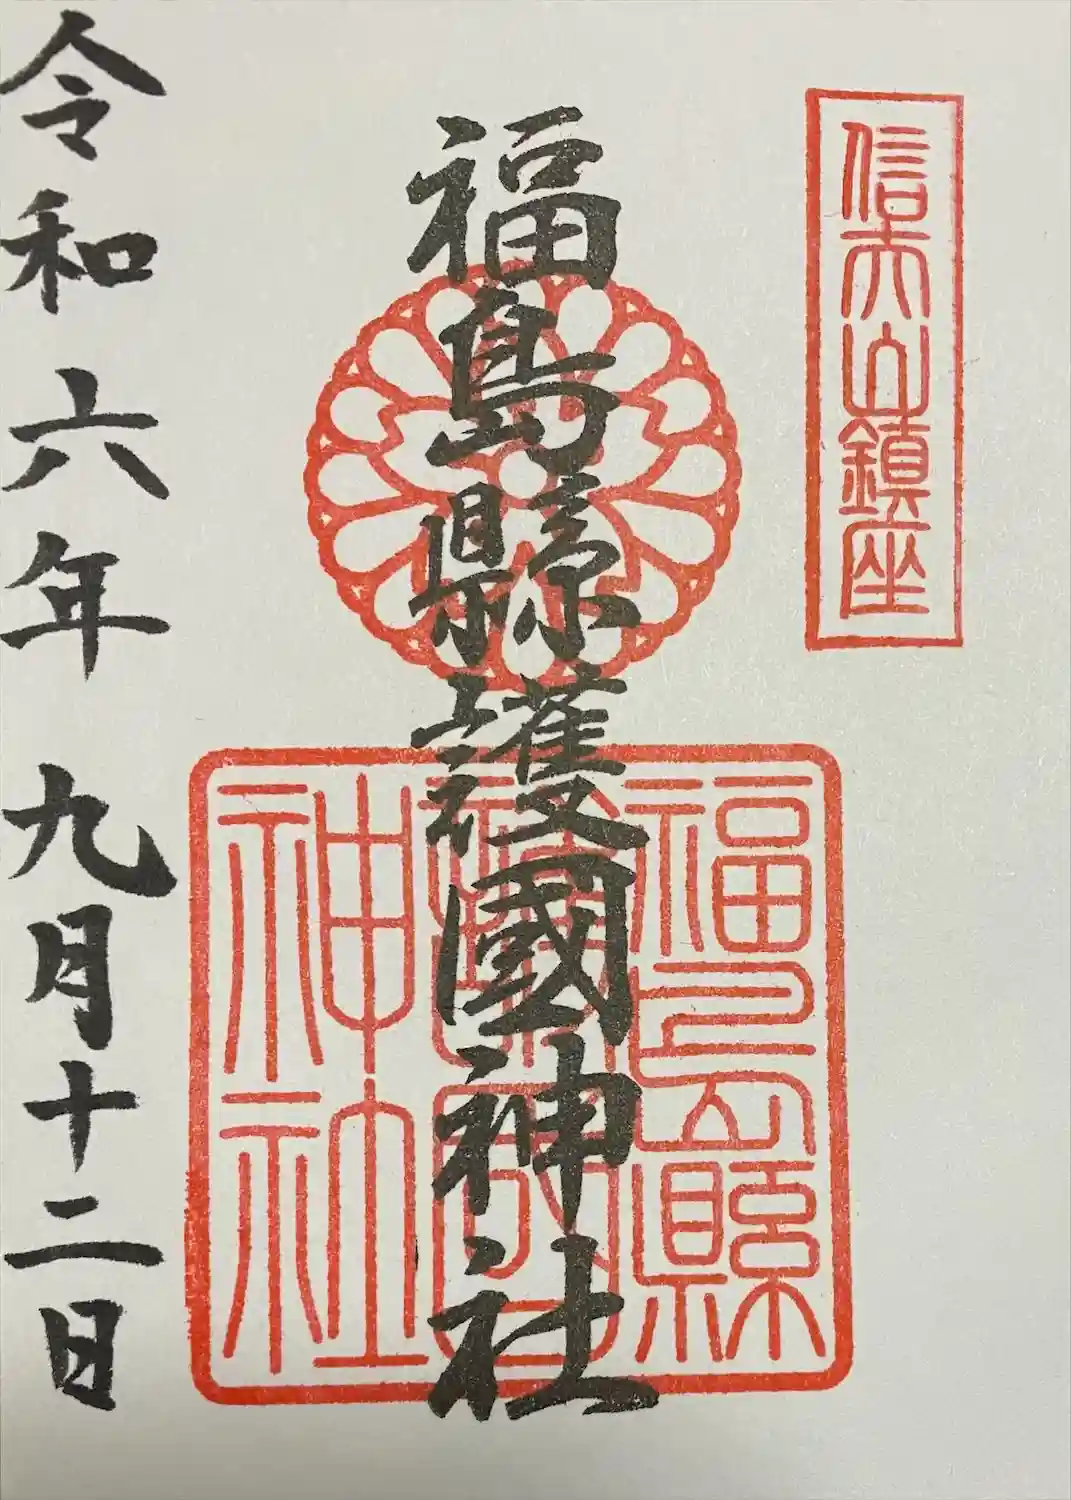 信夫山鎮座
福島縣護國神社
福島縣
護國
神社
令和六年九月十二日